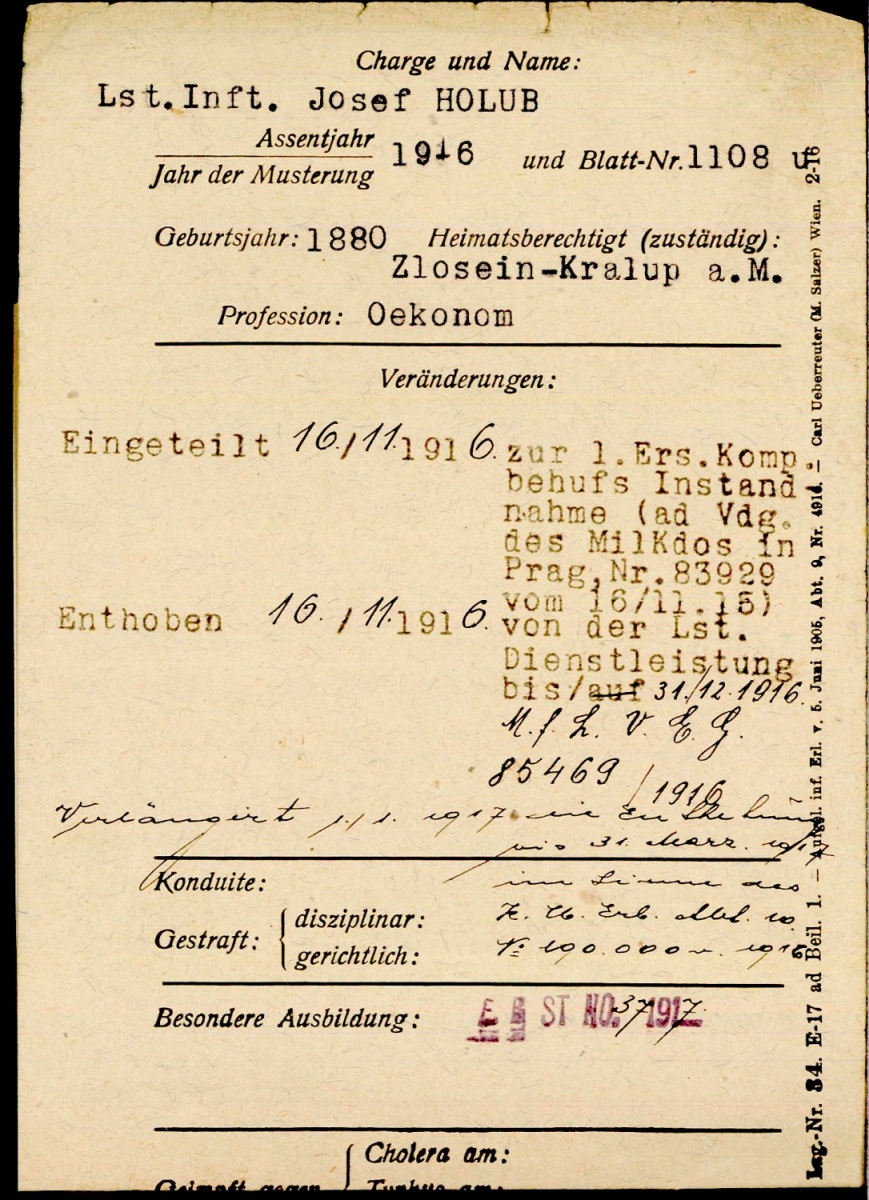 Charge und Name:
Lst.Inft. Josef HOLUB
Assentjahr
Jahr der Musterung
1916 und Blatt-Nr. 1108 u
Geburtsjahr: 1880 Heimatsberechtigt (zuständig):
Zlosein-Kralup a.M.
Profession: Oekonom
Veränderungen:
Eingeteilt 16./11.1916. zur 1.Ers.Komp.
behufs Instand
nahme (ad Vdg.
des MilKdos in
Prag,Nr.83929
vom 16/11.15)
Enthoben 16./11.1916. von der Lst.
Dienstleistung
bis/auf 31./12.1916.
M. f. L. V. E. G.
85469/1916
Verlängert 1./1. 1917. die Enthebung
bis 31. März. 1917
Konduite: im Sinne des
Gestraft: disziplinar: K. U. Erl. Abt. 10
gerichtlich: No 190.000 v. 1915
Besondere Ausbildung: E B ST NO. 37 1917
Cholera am:
Geimpft gegen Typhus am:
Lag.-Nr. 34. E-17 ad Beil. 1. — Aufgel. inf. Erl. v. 5. Juni 1905, Abt. 9, Nr. 4914. — Carl Ueberreuter (M. Salzer) Wien. 2-16